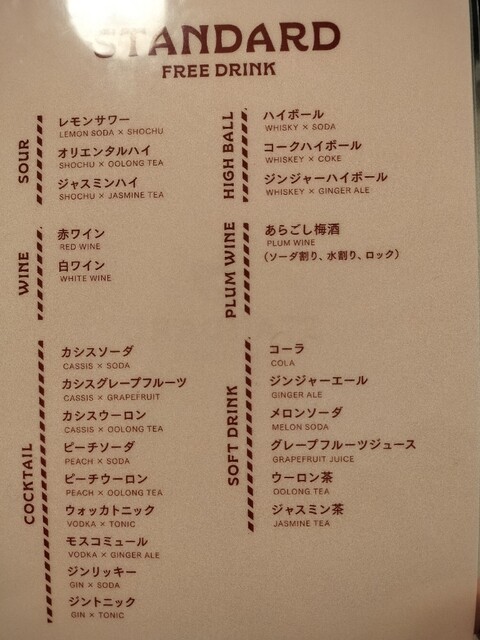 STANDARD
FREE DRINK
SOUR
レモンサワー
LEMON SODA × SHOCHU
オリエンタルハイ
SHOCHU × OOLONG TEA
ジャスミンハイ
SHOCHU × JASMINE TEA
WINE
赤ワイン
RED WINE
白ワイン
WHITE WINE
COCKTAIL
カシスソーダ
CASSIS × SODA
カシスグレープフルーツ
CASSIS × GRAPEFRUIT
カシスウーロン
CASSIS × OOLONG TEA
ピーチソーダ
PEACH × SODA
ピーチウーロン
PEACH × OOLONG TEA
ウォッカトニック
VODKA × TONIC
モスコミュール
VODKA × GINGER ALE
ジンリッキー
GIN × SODA
ジントニック
GIN × TONIC
HIGH BALL
ハイボール
WHISKY × SODA
コークハイボール
WHISKEY × COKE
ジンジャーハイボール
WHISKEY × GINGER ALE
PLUM WINE
あらごし梅酒
PLUM WINE
（ソーダ割り、水割り、ロック）
SOFT DRINK
コーラ
COLA
ジンジャーエール
GINGER ALE
メロンソーダ
MELON SODA
グレープフルーツジュース
GRAPEFRUIT JUICE
ウーロン茶
OOLONG TEA
ジャスミン茶
JASMINE TEA